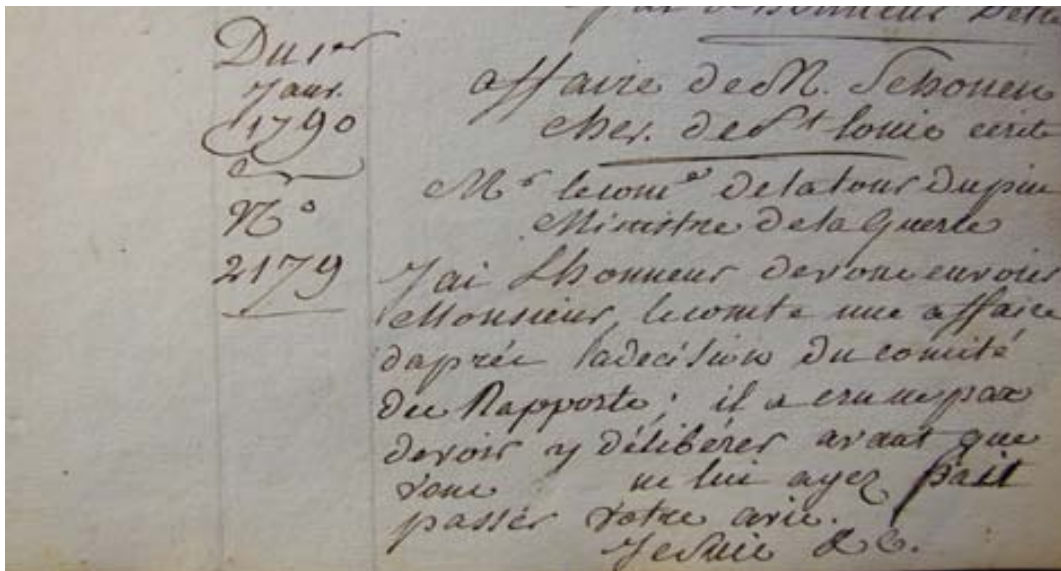 j'ai Lhonneur Detre
Du 1er
Janv.
1790
N°
2179
affaire de M. Schouen
cher. de St louis ecrite
Mr lecomte Delatour Dupin
Ministre Dela Guerre
J'ai Lhonneur devous envoier
Monsieur lecomte une affaire
daprés ladecision Du comité
Des Rapports; il a cru ne pas
devoir y délibérer avant que
vous ne lui ayez fait
passer votre avis.
Je suis &c.